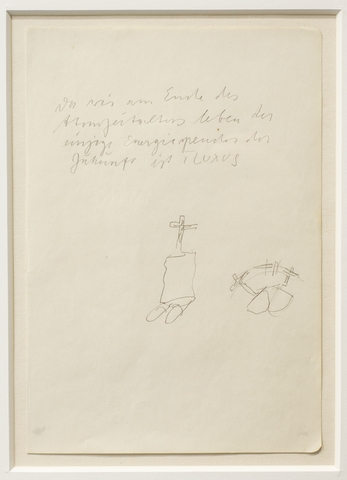 Da wir am Ende des
Atomzeitalters leben der
einzige Energiespender der
Zukunft ist ILUXUS